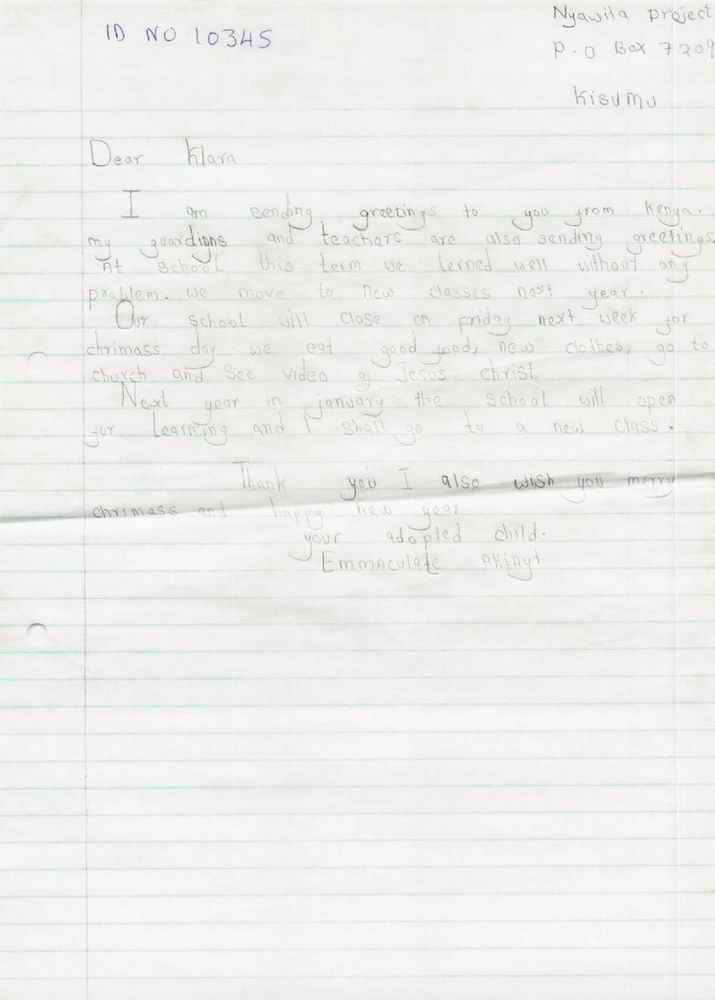 ID NO 10345
Nyawita project
P.O Box 7209
Kisumu
Dear Klara
I am sending greetings to you from Kenya.
my guardigns and teachers are also sending greetings
At school this term we lerned well without any
problem. we move to new classes next year.
Our school will close on friday next week for
chrimass day we eat good food, new clothes, go to
church and see video of Jesus christ
Next year in january the school will open
for learning and I shall go to a new class.
Thank you I also wish you merry
chrimass and happy new year
your adopted child.
Emmaculate Akinyi